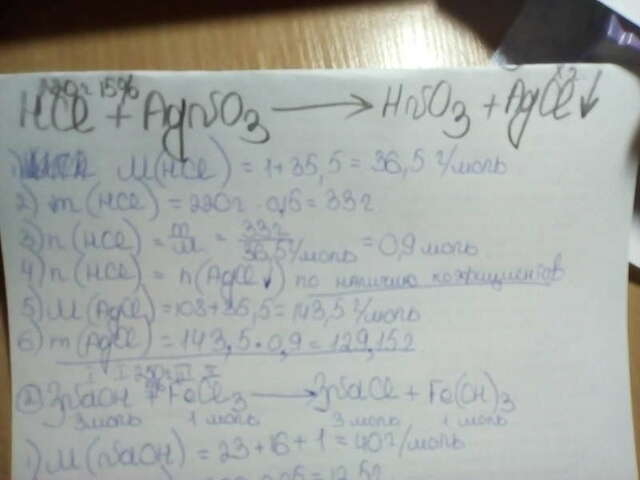 220г 15% x г
HCl + AgNO3 → HNO3 + AgCl↓
1) M(HCl) = 1+35,5 = 36,5 г/моль
2) m(HCl) = 220г · 0,15 = 33г
3) n(HCl) = m/M = 33г/36,5г/моль = 0,9 моль
4) n(HCl) = n(AgCl↓) по наличию коэфициентов
5) M(AgCl) = 108+35,5 = 143,5 г/моль
6) m(AgCl) = 143,5·0,9 = 129,15г
2) 3NaOH + FeCl3 → 3NaCl + Fe(OH)3
3 моль 1 моль 3 моль 1 моль
1) M(NaOH) = 23+16+1 = 40г/моль